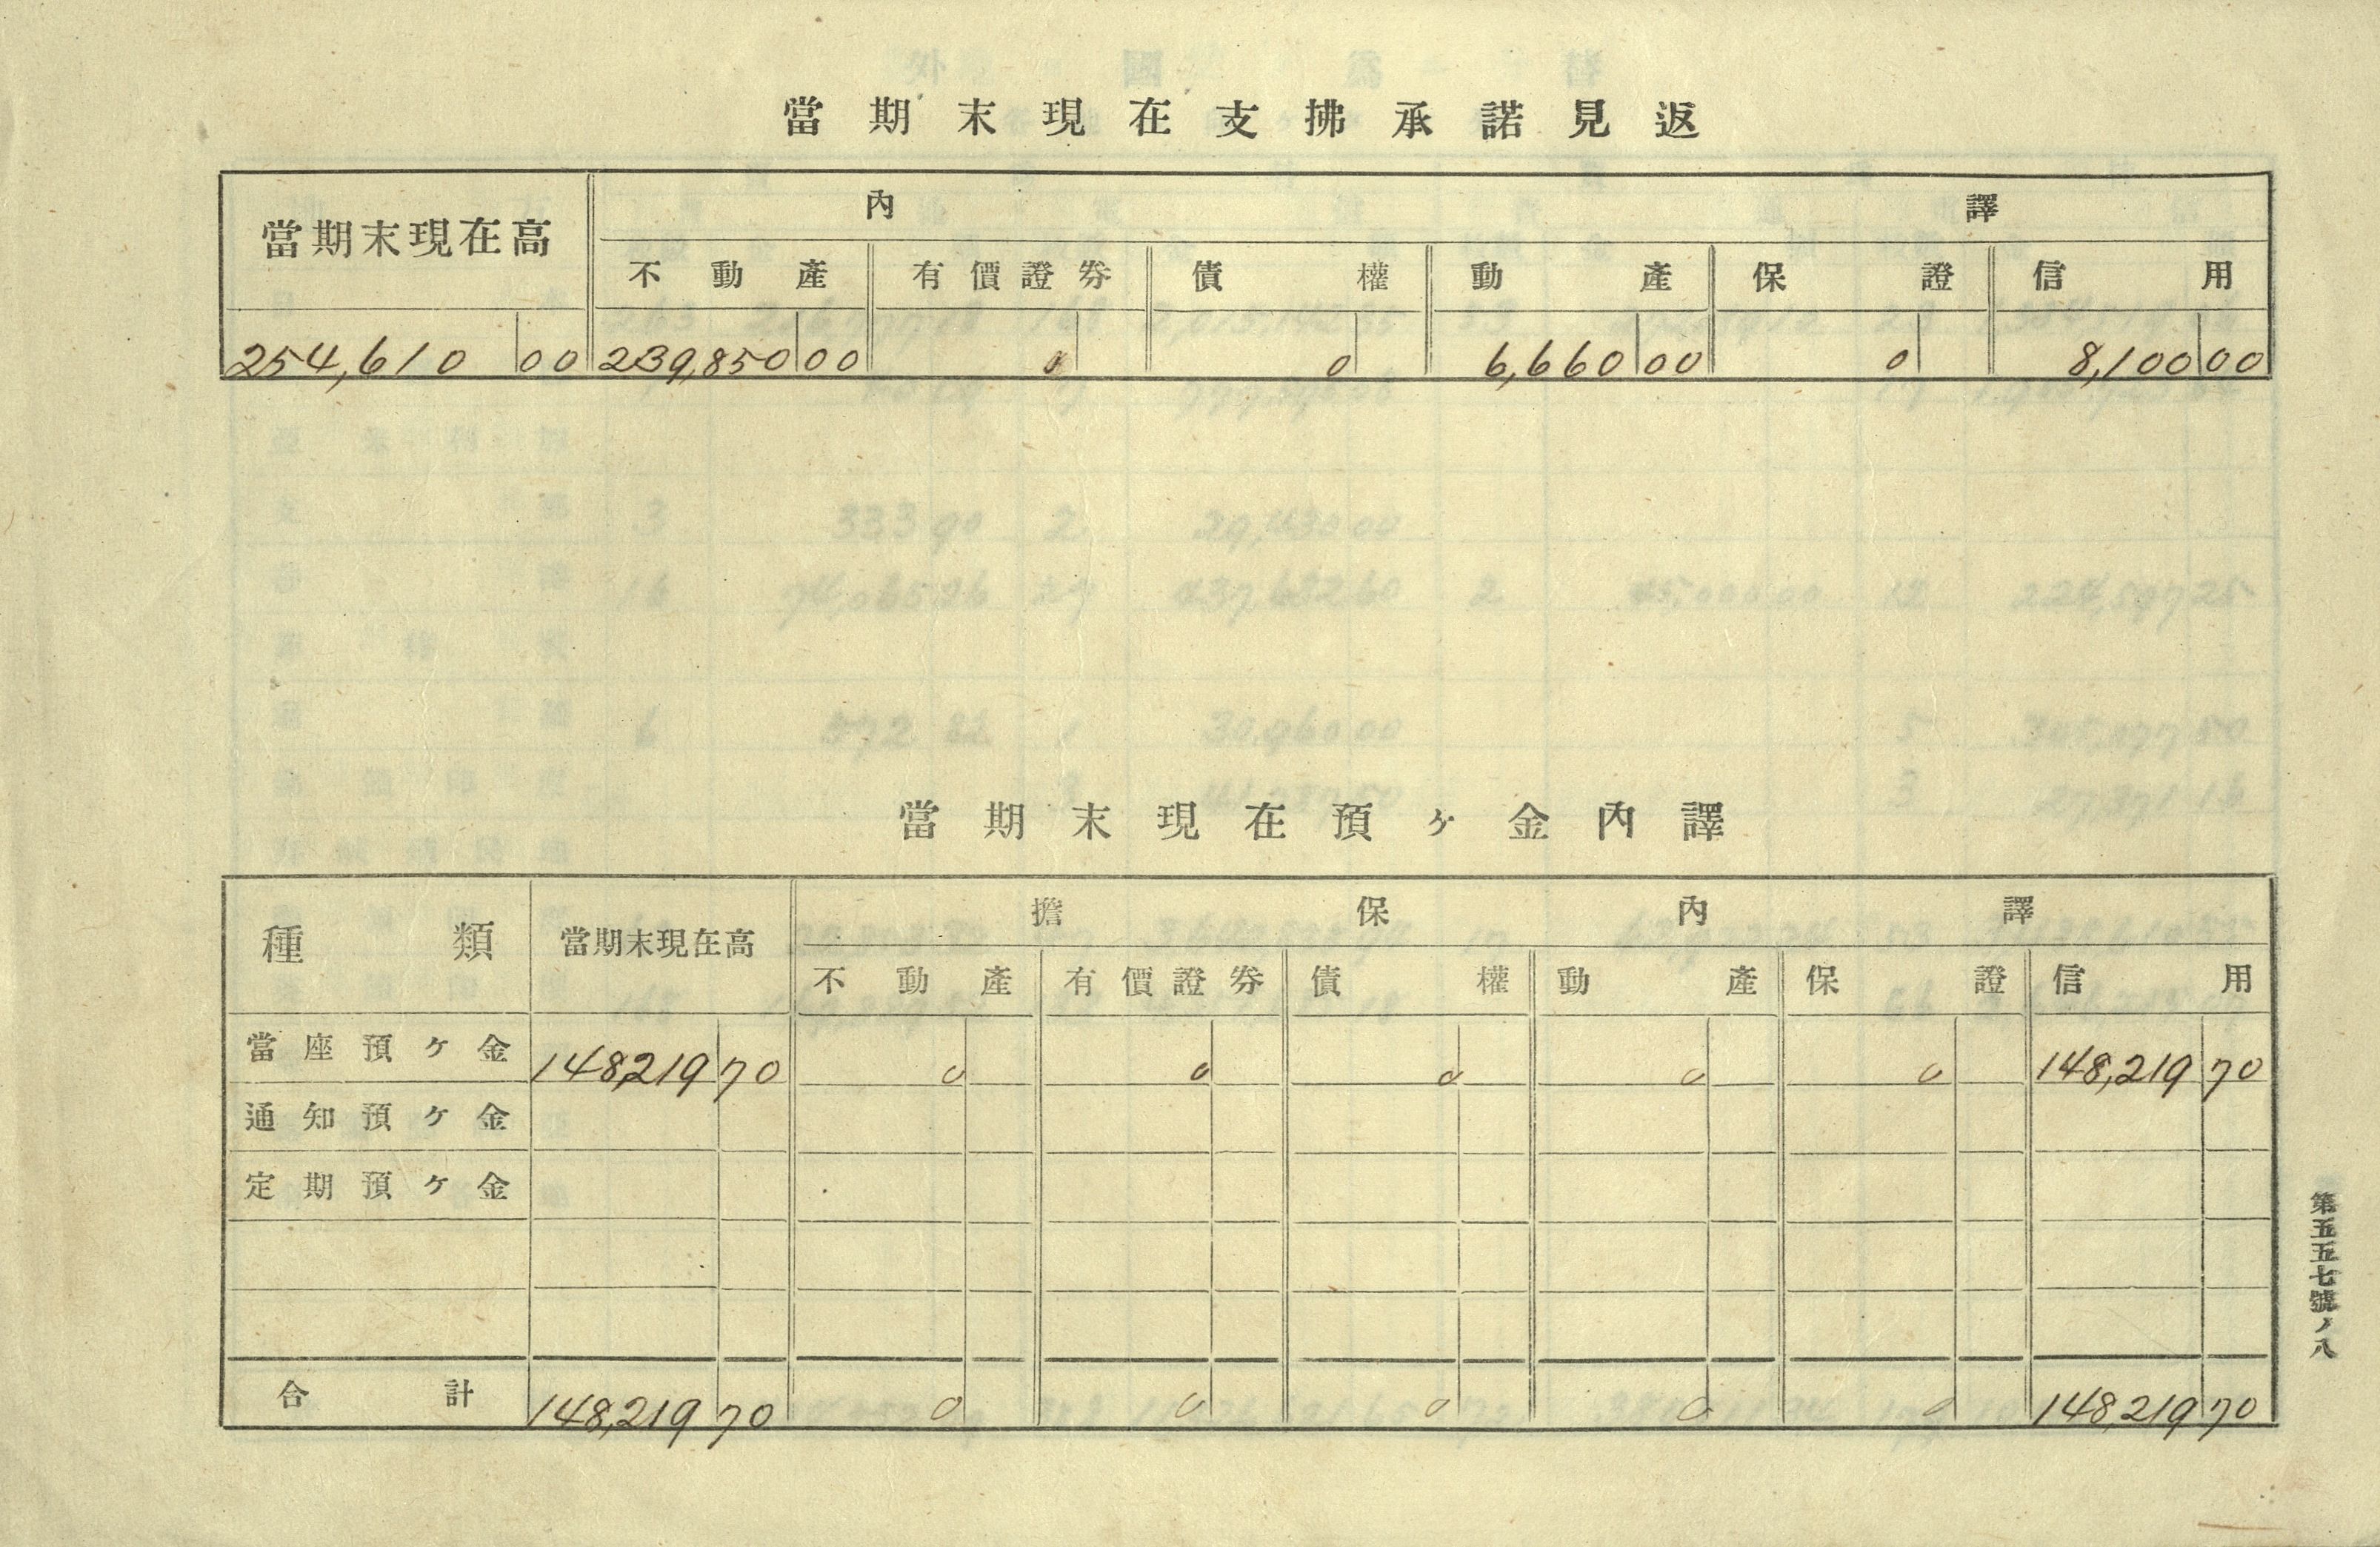 當期末現在支拂承諾見返
當期末現在高 內譯
不動產 有價證券 債權 動產 保證 信用
254,610 00 239,850 00 0 0 6,660 00 0 8,100 00
當期末現在預ヶ金內譯
種類 當期末現在高 擔保內譯
不動產 有價證券 債權 動產 保證 信用
當座預ヶ金 148,219 70 0 0 0 0 0 148,219 70
通知預ヶ金
定期預ヶ金
合計 148,219 70 0 0 0 0 0 148,219 70
第五五七號ノ八